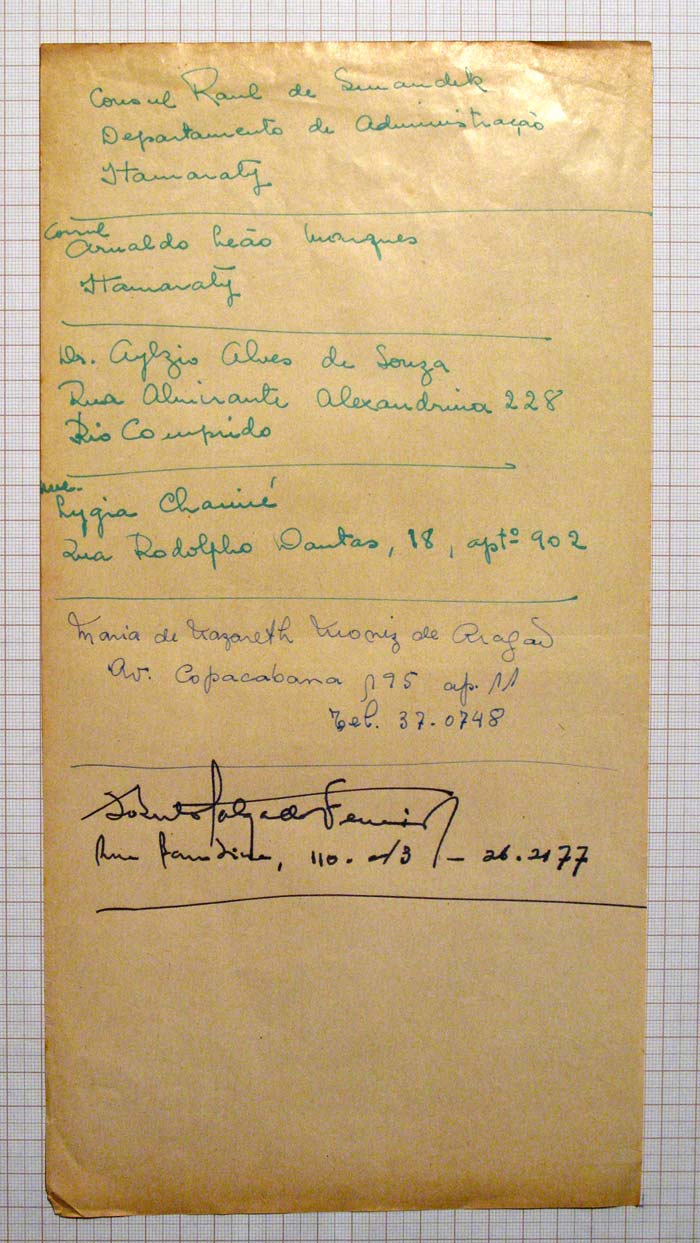 Consul Raul de Smandek
Departamento de Administração
Itamaraty
Consul
Arnaldo Leão Marques
Itamaraty
Dr. Aylzio Alves de Souza
Rua Almirante Alexandrina 228
Rio Comprido
Lygia Chamié
Rua Rodolpho Dantas, 18, aptº 902
Maria de Nazareth Moniz de Aragão
Av. Copacabana 195 ap. 11
Tel. 37.0748
Roberto Salgado Ferreira
110. - 26.2177